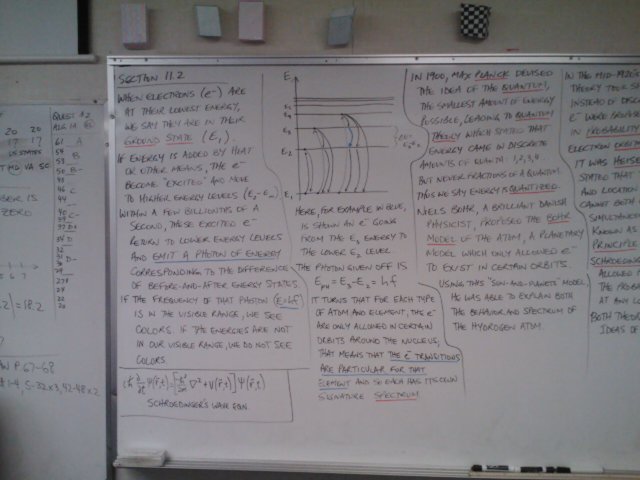 SECTION 11.2
WHEN ELECTRONS (e⁻) ARE
AT THEIR LOWEST ENERGY,
WE SAY THEY ARE IN THEIR
GROUND STATE (E₁).
IF ENERGY IS ADDED BY HEAT
OR OTHER MEANS, THE e⁻
BECOME "EXCITED" AND MOVE
TO HIGHER ENERGY LEVELS (E₂-E∞)
WITHIN A FEW BILLIONTHS OF A
SECOND, THESE EXCITED e⁻
RETURN TO LOWER ENERGY LEVELS
AND EMIT A PHOTON OF ENERGY
CORRESPONDING TO THE DIFFERENCE
OF BEFORE-AND-AFTER ENERGY STATES.
IF THE FREQUENCY OF THAT PHOTON (E=hf)
IS IN THE VISIBLE RANGE, WE SEE
COLORS. IF THE ENERGIES ARE NOT
IN OUR VISIBLE RANGE, WE DO NOT SEE
COLORS
SCHROEDINGER'S WAVE EQN.
E
E₃
E₂
E₁
HERE, FOR EXAMPLE IN BLUE,
IS SHOWN AN e⁻ GOING
FROM THE E₃ ENERGY TO
THE LOWER E₂ LEVEL.
THE PHOTON GIVEN OFF IS
E_PH = E₃-E₂ = hf
IT TURNS THAT FOR EACH TYPE
OF ATOM AND ELEMENT, THE e⁻
ARE ONLY ALLOWED IN CERTAIN
ORBITS AROUND THE NUCLEUS,
THAT MEANS THAT THE e⁻ TRANSITIONS
ARE PARTICULAR FOR THAT
ELEMENT AND SO EACH HAS ITS OWN
SIGNATURE SPECTRUM.
IN 1900, MAX PLANCK DEVISED
THE IDEA OF THE QUANTUM,
THE SMALLEST AMOUNT OF ENERGY
POSSIBLE, LEADING TO QUANTUM
THEORY WHICH STATED THAT
ENERGY CAME IN DISCRETE
AMOUNTS OF QUANTA: 1,2,3,4...
BUT NEVER FRACTIONS OF A QUANTUM.
THUS WE SAY ENERGY IS QUANTIZED.
NIELS BOHR, A BRILLIANT DANISH
PHYSICIST, PROPOSED THE BOHR
MODEL OF THE ATOM, A PLANETARY
MODEL WHICH ONLY ALLOWED e⁻
TO EXIST IN CERTAIN ORBITS.
USING THIS "SUN-AND-PLANETS" MODEL
HE WAS ABLE TO EXPLAIN BOTH
THE BEHAVIOR AND SPECTRUM OF
THE HYDROGEN ATOM.
IN THE MID-1920's
THEORY TOOK
INSTEAD OF
e⁻ WERE PROPOSED
IN PROBABILITY
ELECTRON ORBIT
IT WAS HEISEN
STATED THAT
AND LOCATION
CANNOT BOTH
SIMULTANEOUS
KNOWN AS
PRINCIPLE
SCHROEDINGER
ALLOWED
THE PROBA
AT ANY
BOTH THEOR
IDEAS OF
20 20
17 17
ZERO
QUEST #2